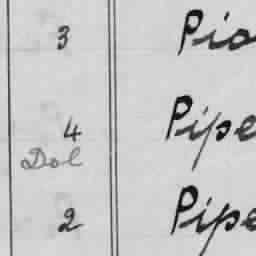 3 Pia
4 Pipe
Dol
2 Pipe